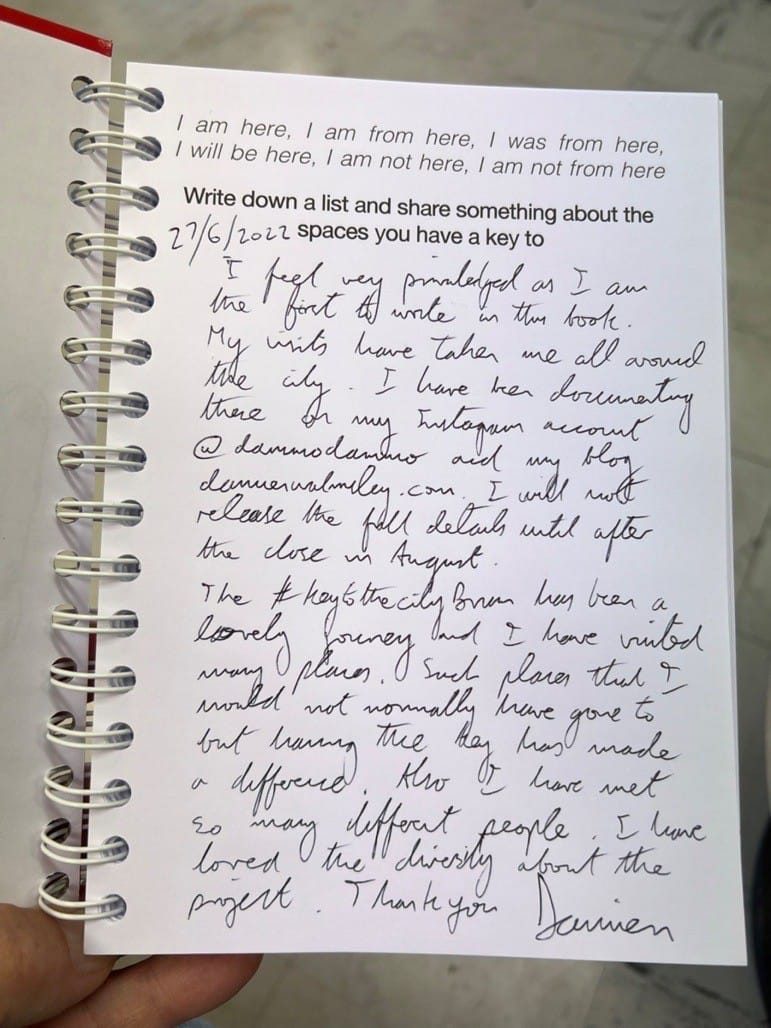 I am here, I am from here, I was from here,
I will be here, I am not here, I am not from here
Write down a list and share something about the
27/6/2022 spaces you have a key to
I feel very priviledged as I am
the first to write in this book.
My visits have taken me all around
the city. I have been documenting
these on my Instagram account
@dammodammo and my blog
damienwalmsley.com. I will not
release the full details until after
the close in August.
The #keytothecityBrum has been a
lovely journey and I have visited
many places. Such places that I
would not normally have gone to
but having the key has made
a difference. Also I have met
so many different people. I have
loved the diversity about the
project. Thank you Damien